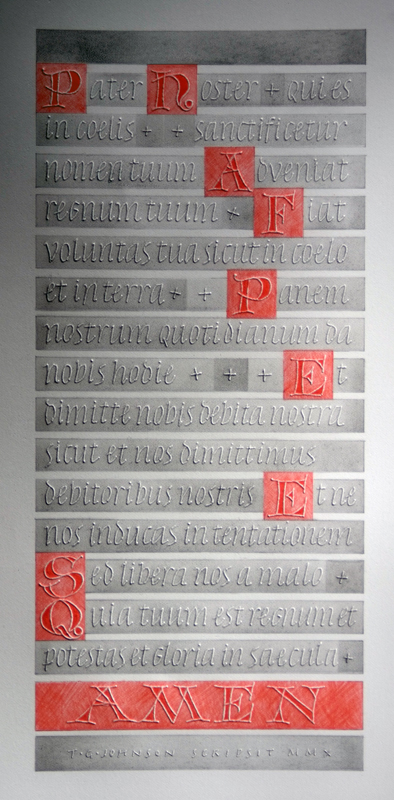 Pater Noster + qui es
in coelis + + sanctificetur
nomen tuum Adveniat
regnum tuum + Fiat
voluntas tua sicut in coelo
et in terra + + Panem
nostrum quotidianum da
nobis hodie + + + Et
dimitte nobis debita nostra
sicut et nos dimittimus
debitoribus nostris Et ne
nos inducas in tentationem
Sed libera nos a malo +
Quia tuum est regnum et
potestas et gloria in saecula +
AMEN
T·G·JOHNSEN SCRIPSIT MMX